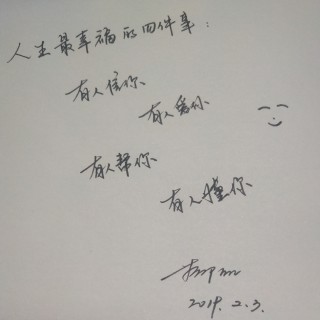 人生最幸福的四件事:
有人信你
有人爱你
有人帮你
有人懂你
2019.2.3.